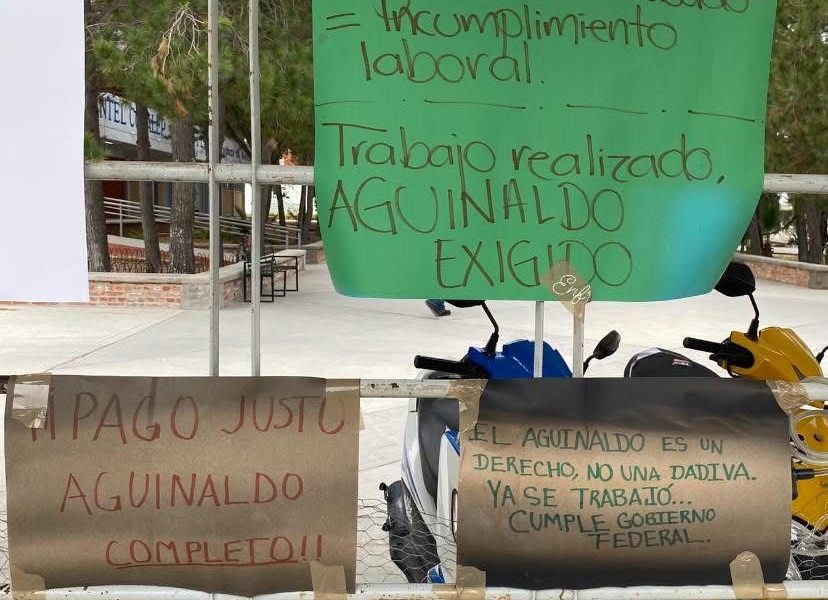 = Incumplimiento
laboral.
Trabajo realizado,
AGUINALDO
EXIGIDO
Enf
¡¡PAGO JUSTO
AGUINALDO
COMPLETO!!
EL AGUINALDO ES UN
DERECHO, NO UNA DADIVA.
YA SE TRABAJÓ...
CUMPLE GOBIERNO
FEDERAL.